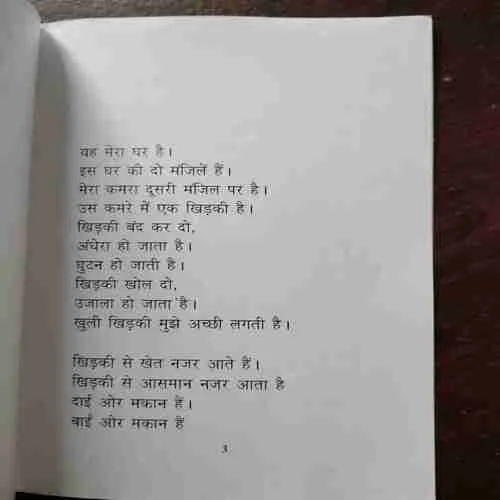 यह मेरा घर है।
इस घर की दो मंजिलें हैं।
मेरा कमरा दूसरी मंजिल पर है।
उस कमरे में एक खिड़की है।
खिड़की बंद कर दो,
अंधेरा हो जाता है।
घुटन हो जाती है।
खिड़की खोल दो,
उजाला हो जाता है।
खुली खिड़की मुझे अच्छी लगती है।
खिड़की से खेत नजर आते हैं।
खिड़की से आसमान नजर आता है
दाईं ओर मकान हैं।
बाईं ओर मकान हैं
3